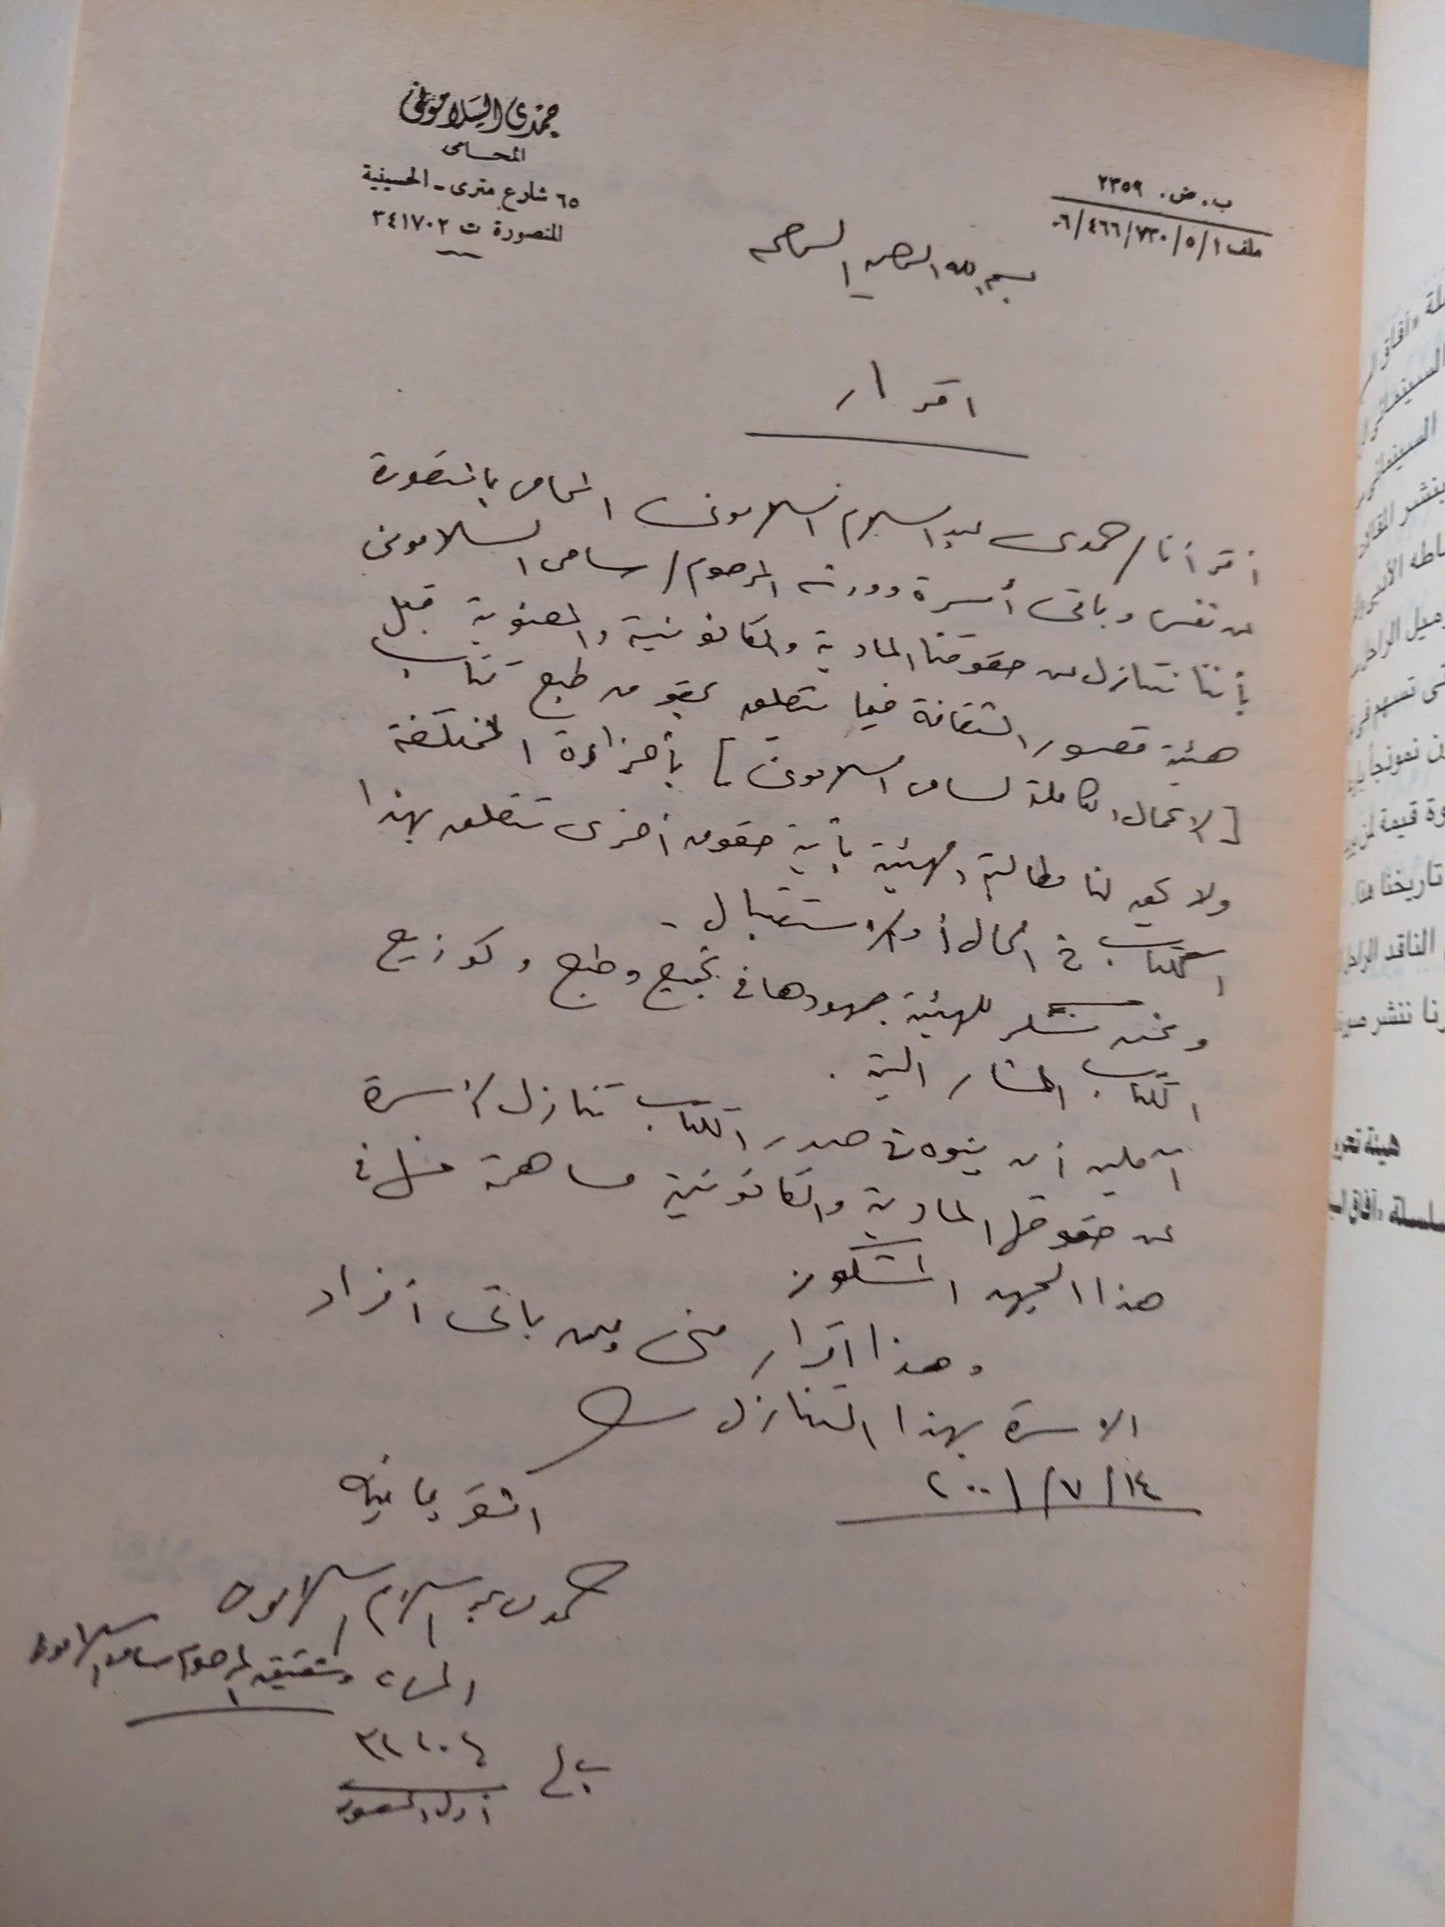 حمدى السلامونى
المحامى
٦٥ شارع مترى - الحسينية
المنصورة ت ٣٤١٧٠٢
ب . ض . ٢٣٥٩
ملف ٠٦/٤٦٦/٧٣٠/٥/١
بسم الله الرحمن الرحيم
اقرار
اقر أنا / حمدى عبد السلام السلامونى المحامى بالمنصورة
عن نفسى وباقى أسرة وورثة المرحوم / سامى السلامونى
بأننا نتنازل عن حقوقنا المادية والقانونية والمعنوية قبل
هيئة قصور الثقافة فيما يتعلق بحقوق طبع كتاب
[ الاعمال الكاملة لسامى السلامونى ] بأجزاءه المختلفة
ولا يحق لنا مطالبة الهيئة بأية حقوق أخرى تتعلق بهذا
الكتاب فى الحال أو الاستقبال -
ونحن نشكر للهيئة جهودها فى تجميع وطبع وتوزيع
الكتاب المشار اليه .
آملين أن ينوه فى صدر الكتاب تنازل الأسرة
عن حقوقها المادية والقانونية مساهمة منا فى
هذا الجهد المشكور
وهذا اقرار منى وعن باقى أفراد
الاسرة بهذا التنازل
٢٠٠١/٧/١٤
المقر بما فيه
حمدى عبد السلام السلامونى
المحامى وشقيق المرحوم سامى السلامونى
أول المنصورة
هيئة تحرير